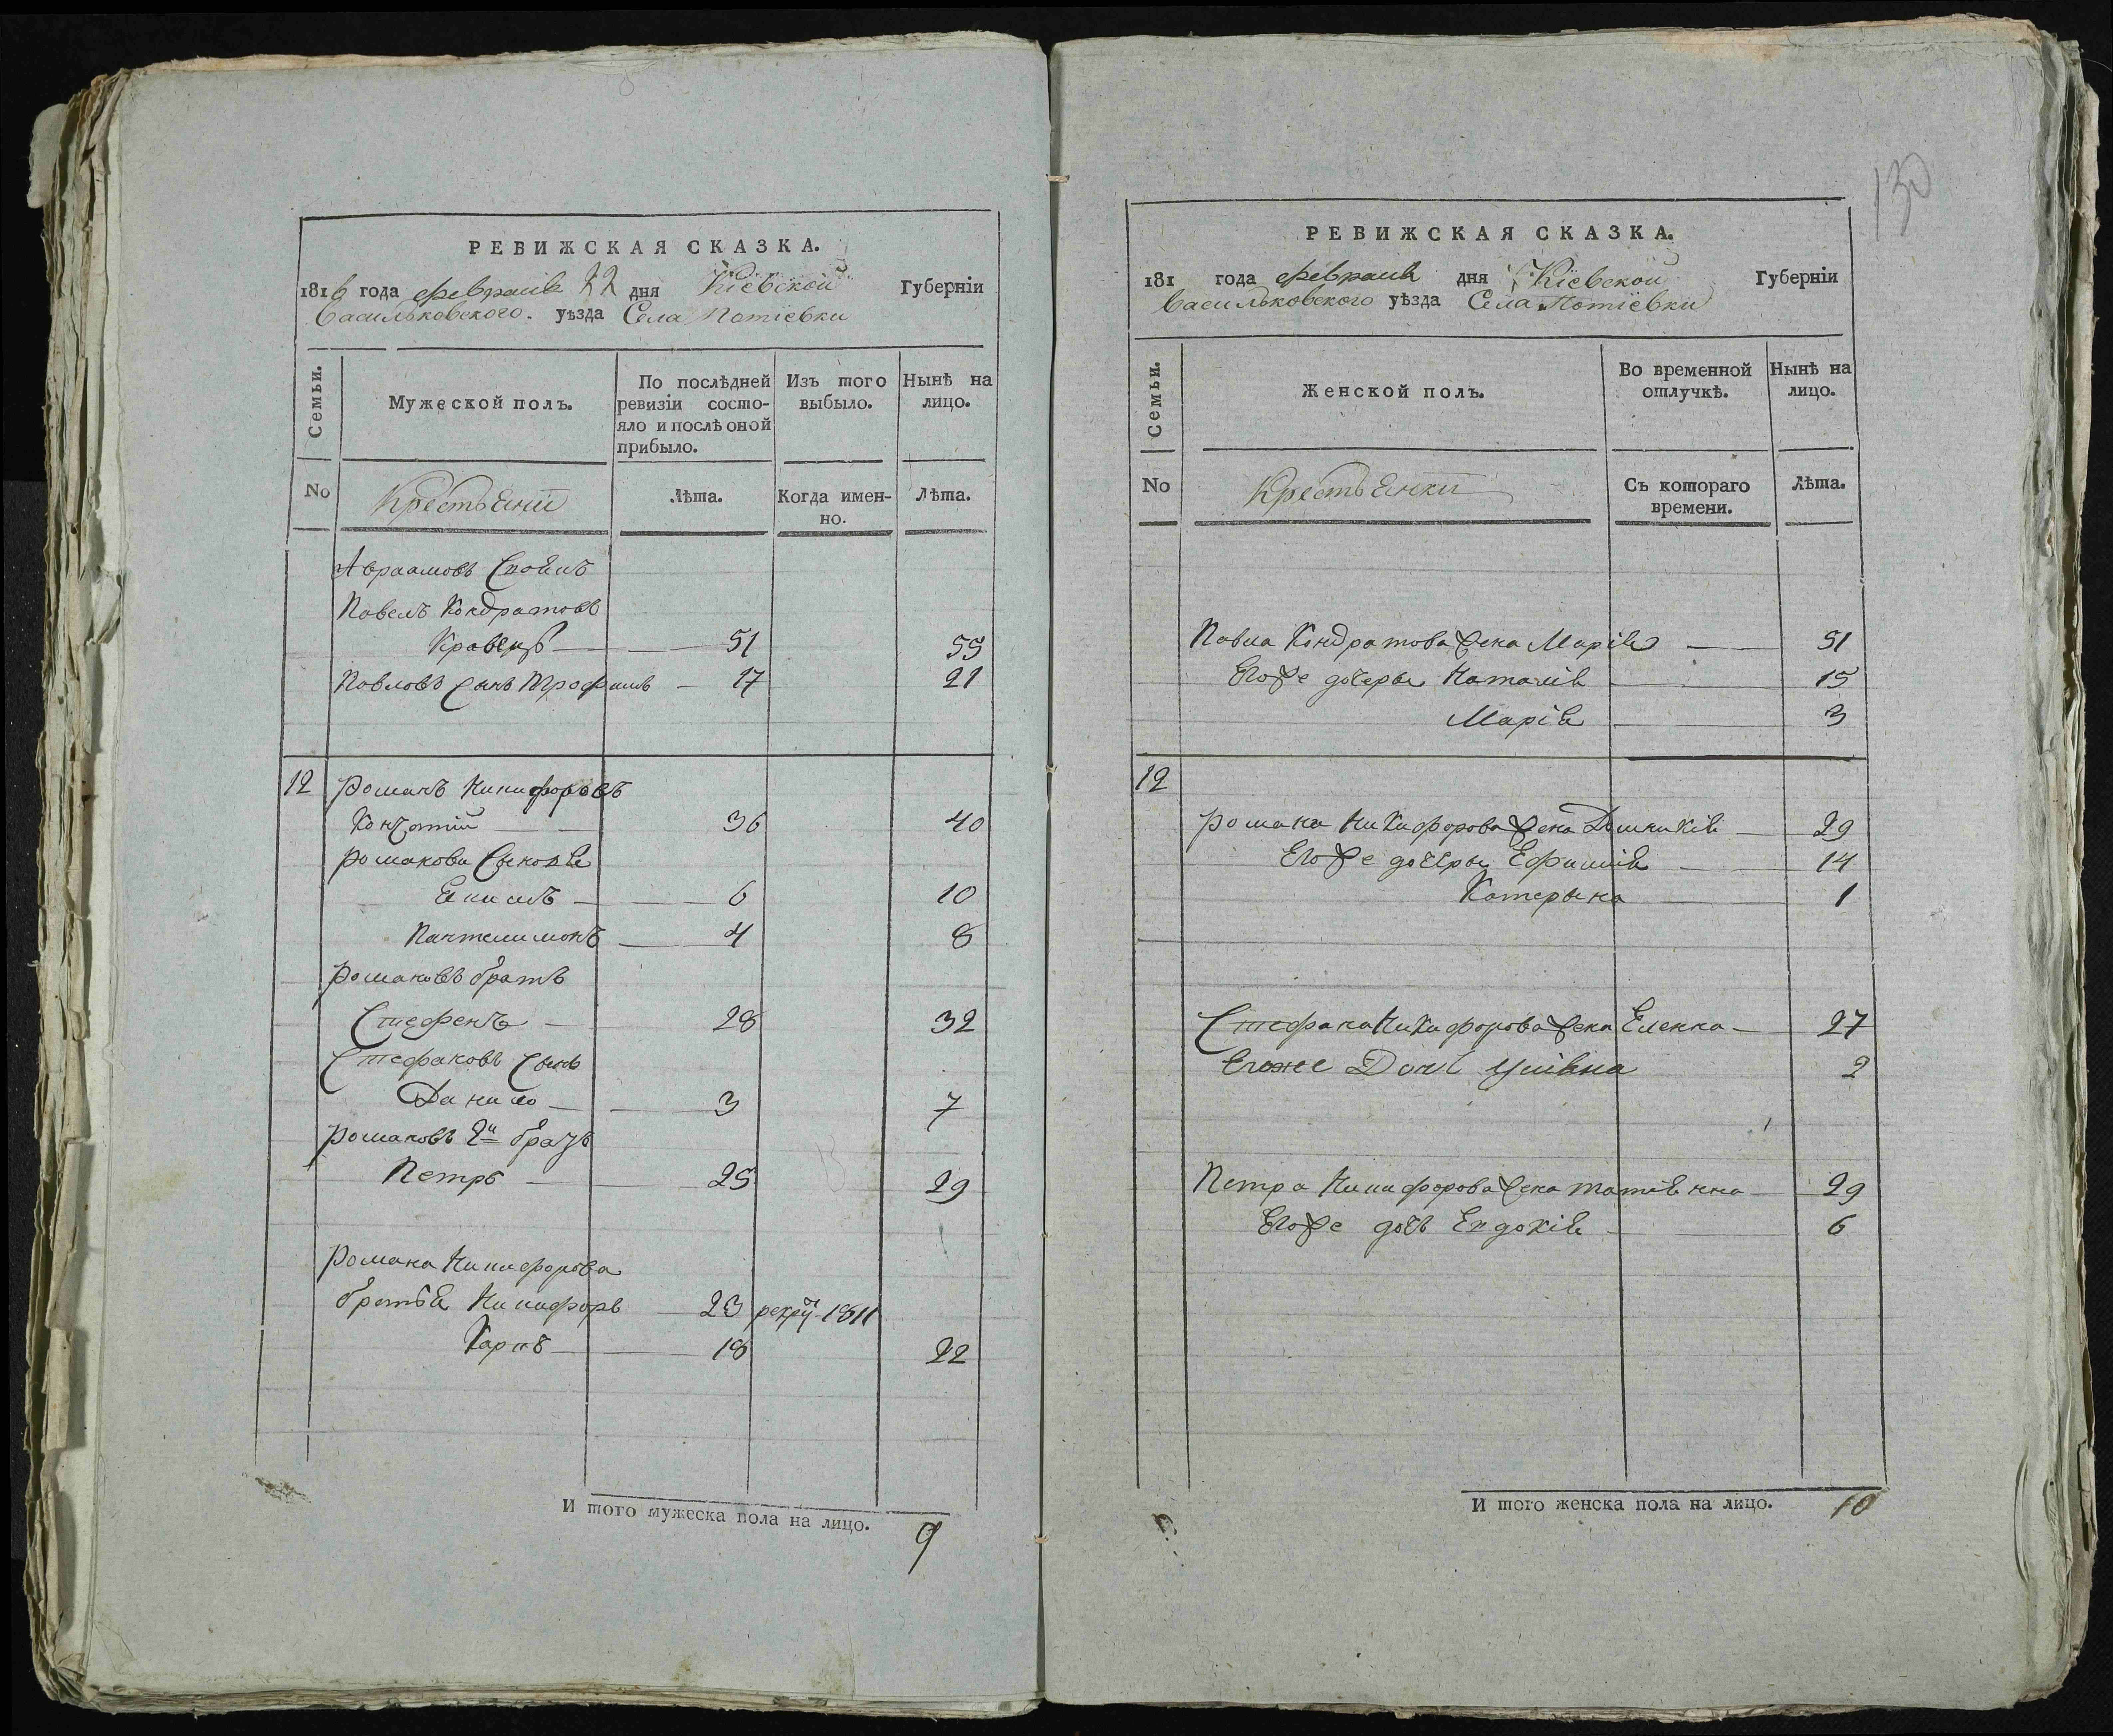 РЕВИЖСКАЯ СКАЗКА.
1816 года февраля 22 дня Кіевской Губерніи
Васильковского уѣзда Села Потіевки
Семьи.
Мужеской полъ.
По послѣдней ревизіи состо-
яло и послѣ оной
прибыло.
Изъ того
выбыло.
Нынѣ на
лицо.
No
Крестьяни
Лѣта.
Когда имен-
но.
Лѣта.
Авраамовъ
Павелъ Кондратовъ
Кравецъ 51 55
Павловъ сынъ Трофимъ 17 21
12 Романъ Никифоровъ
36 40
Романови Сыновья
Екимъ 6 10
Пантелимонъ 4 8
Романовъ братъ
Стефенъ 28 32
Стефановъ Сынъ
Данило 3 7
Романовъ 2й братъ
Петръ 25 29
Романа Никифорова
братья Никифоръ 23 рекру 1811
Карпъ 18 22
И того мужеска пола на лицо. 9
130
РЕВИЖСКАЯ СКАЗКА.
181 года февраля дня Кіевской Губерніи
Васильковского уѣзда Села Потіевки
Семьи.
Женской полъ.
Во временной
отлучкѣ.
Нынѣ на
лицо.
No
Крестьянки
Съ котораго
времени.
Лѣта.
Павла Кондратова жена Марія 51
Егоже дочеры Наталія 15
Марія 3
12
Романа Никифорова жена Домникія 29
Егоже дочеры Ефимія 14
Катерына 1
Стефана Никифорова жена Еленна 27
Егоже Дочь Уліяна 2
Петра Никифорова жена татіянна 29
Егоже дочь Евдокія 6
И того женска пола на лицо. 10